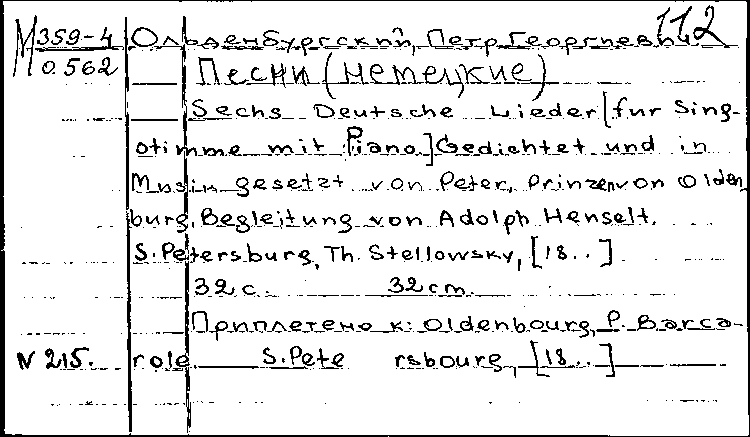 112
М 359-4 Ольденбургский, Петр Георгиевич
0.562 Песни (немецкие)
Sechs Deutsche Lieder [fur Sing-
stimme mit Piano] Gedichtet und in
Musik gesetzt von Peter, Prinzen von Olden
burg. Begleitung von Adolph Henselt.
S. Petersburg, Th. Stellowsky, [18..]
32 с. 32 cm.
Приплетено к: Oldenbourg, P. Barca-
N 215. role S. Petersbourg, [18..]